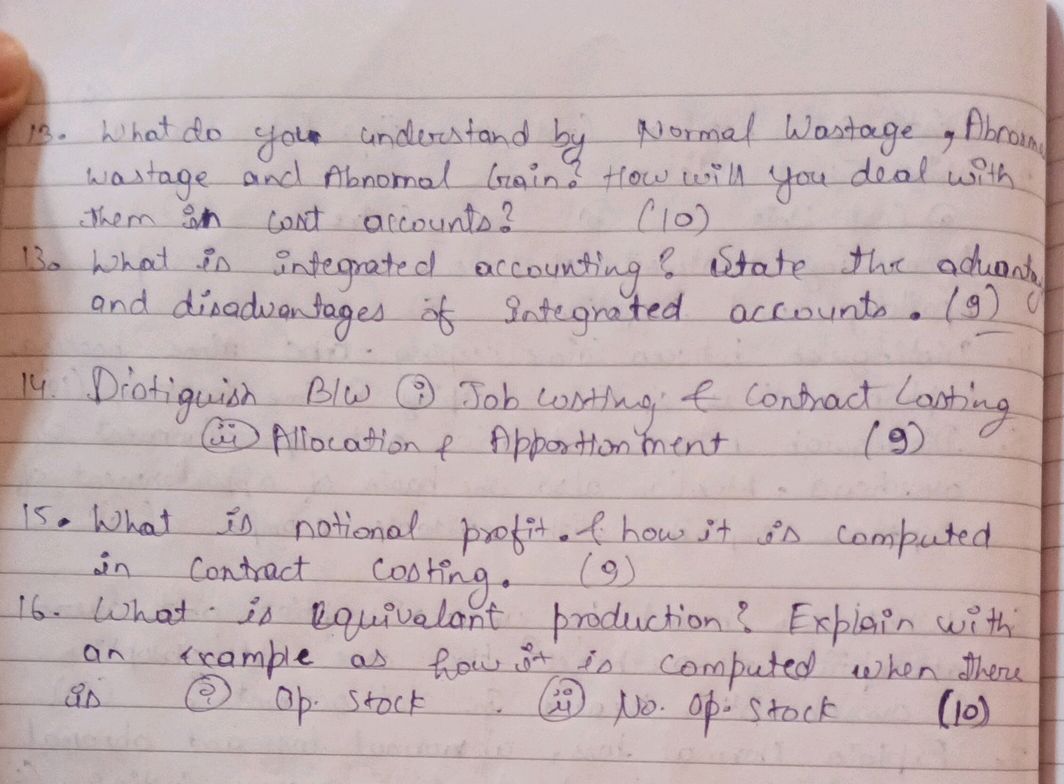 13. What do you understand by Normal Wastage, Abnorma
wastage and Abnomal Gain? How will you deal with
them in cost accounts? (10)
13. What is integrated accounting? State the advanta
and disadvantages of integrated accounts. (9)
14. Distiguish B/W (i) Job costing & Contract Costing
(ii) Allocation & Apportionment (9)
15. What is notional profit. & how it is computed
in Contract costing. (9)
16. What is Equivalant production? Explain with
an example as how it is computed when there
is (i) Op. Stock (ii) No. Op. Stock (10)